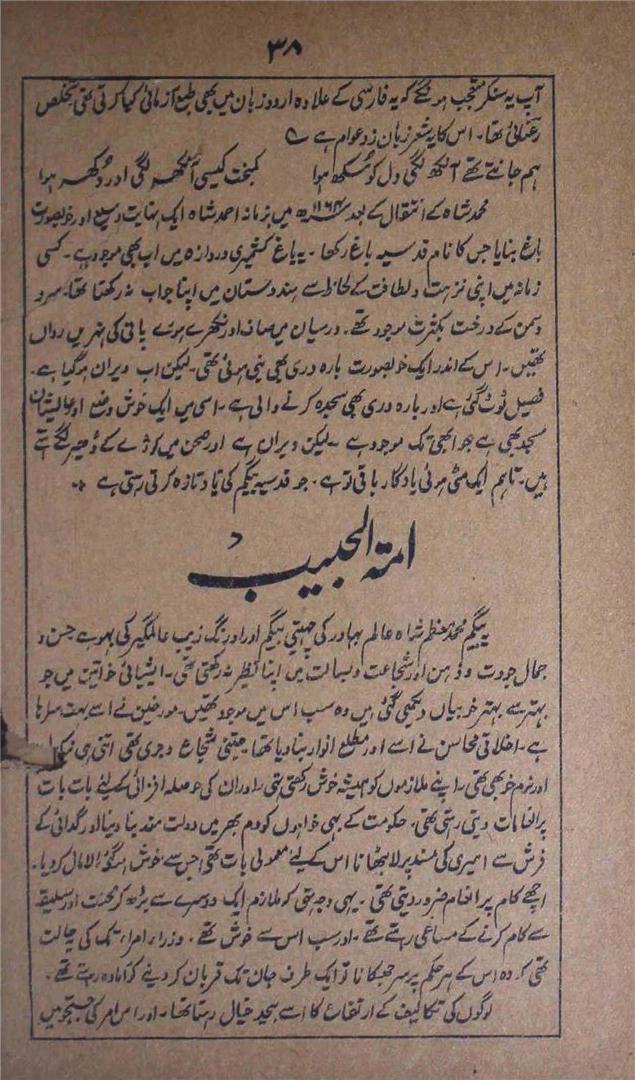 ۳۸
آپ یہ سنکر متعجب ہونگے گو یہ فارسی کے علاوہ اردو زبان میں بھی طبع آزمائی کیا کرتی تھی تخلص
رعنائی تھا۔ اس کا یہ شعر زبان زد عوام ہے
ہم جانتے تھے آنکھ لگی دل کو سُکھ ہوا کمبخت کیسی آنکھ لگی اور دُکھ ہوا
محمد شاہ کے انتقال کے بعد ۱۱۶۲ھ میں بزمانہ احمد شاہ ایک نہایت وسیع اور خوبصورت
باغ بنایا جس کا نام قدسیہ باغ رکھا۔ یہ باغ کشمیری دروازہ میں اب بھی موجود ہے۔ کسی
زمانہ میں اپنی نزہت و لطافت کے لحاظ سے ہندوستان میں اپنا جواب نہ رکھتا تھا۔ سرو
وسمن کے درخت بکثرت موجود تھے۔ درمیان میں صاف اور نکھرے ہوئے پانی کی نہریں رواں
تھیں۔ اس کے اندر ایک خوبصورت بارہ دری بھی بنی ہوئی تھی۔ لیکن اب ویران ہو گیا ہے۔
فصیل ٹوٹ گئی ہے اور بارہ دری بھی سجدہ کرنے والی ہے۔ اسی میں ایک خوش وضع اور عالیشان
مسجد بھی ہے جو ابھی تک موجود ہے۔ لیکن ویران ہے اور صحن میں کوڑے کے ڈھیر لگے رہتے
ہیں۔ تاہم ایک مٹی ہوئی یادگار باقی تو ہے۔ جو قدسیہ بیگم کی یاد تازہ کرتی رہتی ہے
امتہ الحبیب
یہ بیگم محمد معظم شاہ عالم بہادر کی چہیتی بیگم اور اورنگ زیب عالمگیر کی بہو ہے حسن و
جمال جودت و ذہن اور شجاعت و بسالت میں اپنا نظیر نہ رکھتی تھی۔ ایشیائی خواتین میں جو
بہتر سے بہتر خوبیاں دیکھی گئی ہیں وہ سب اس میں موجود تھیں۔ مورخین نے اسے بہت سراہا
ہے۔ اخلاقی محاسن نے اسے اور مطلع انوار بنا دیا تھا۔ جتنی شجاع و جری تھی اتنی ہی
اور نرم خو بھی تھی۔ اپنے ملازموں کو ہمیشہ خوش رکھتی تھی۔ اور ان کی حوصلہ افزائی کے لیے بات بات
پر انعامات دیتی رہتی تھی۔ حکومت کے بہی خواہوں کو دم بھر میں دولت مند بنا دینا اور گدائی کے
فرش سے امیری کی مسند پر لا بٹھانا اس کے لیے معمولی بات تھی جس سے خوش ہو گئی مالامال کر دیا۔
اچھے کام پر انعام ضرور دیتی تھی۔ یہی وجہ تھی کہ ملازم ایک دوسرے سے بڑھ کر محنت اور سلیقہ
سے کام کرنے کے مساعی رہتے تھے۔ اور سب اس سے خوش تھے۔ وزراء امراء تک کی یہ حالت
تھی کہ وہ اس کے ہر حکم پر سر جھکانا تو ایک طرف جان تک قربان کر دینے کو آمادہ رہتے تھے۔
لوگوں کی تکالیف کے ارتفاع کا اسے بیحد خیال رہتا تھا۔ اور اس امر کی جستجو میں